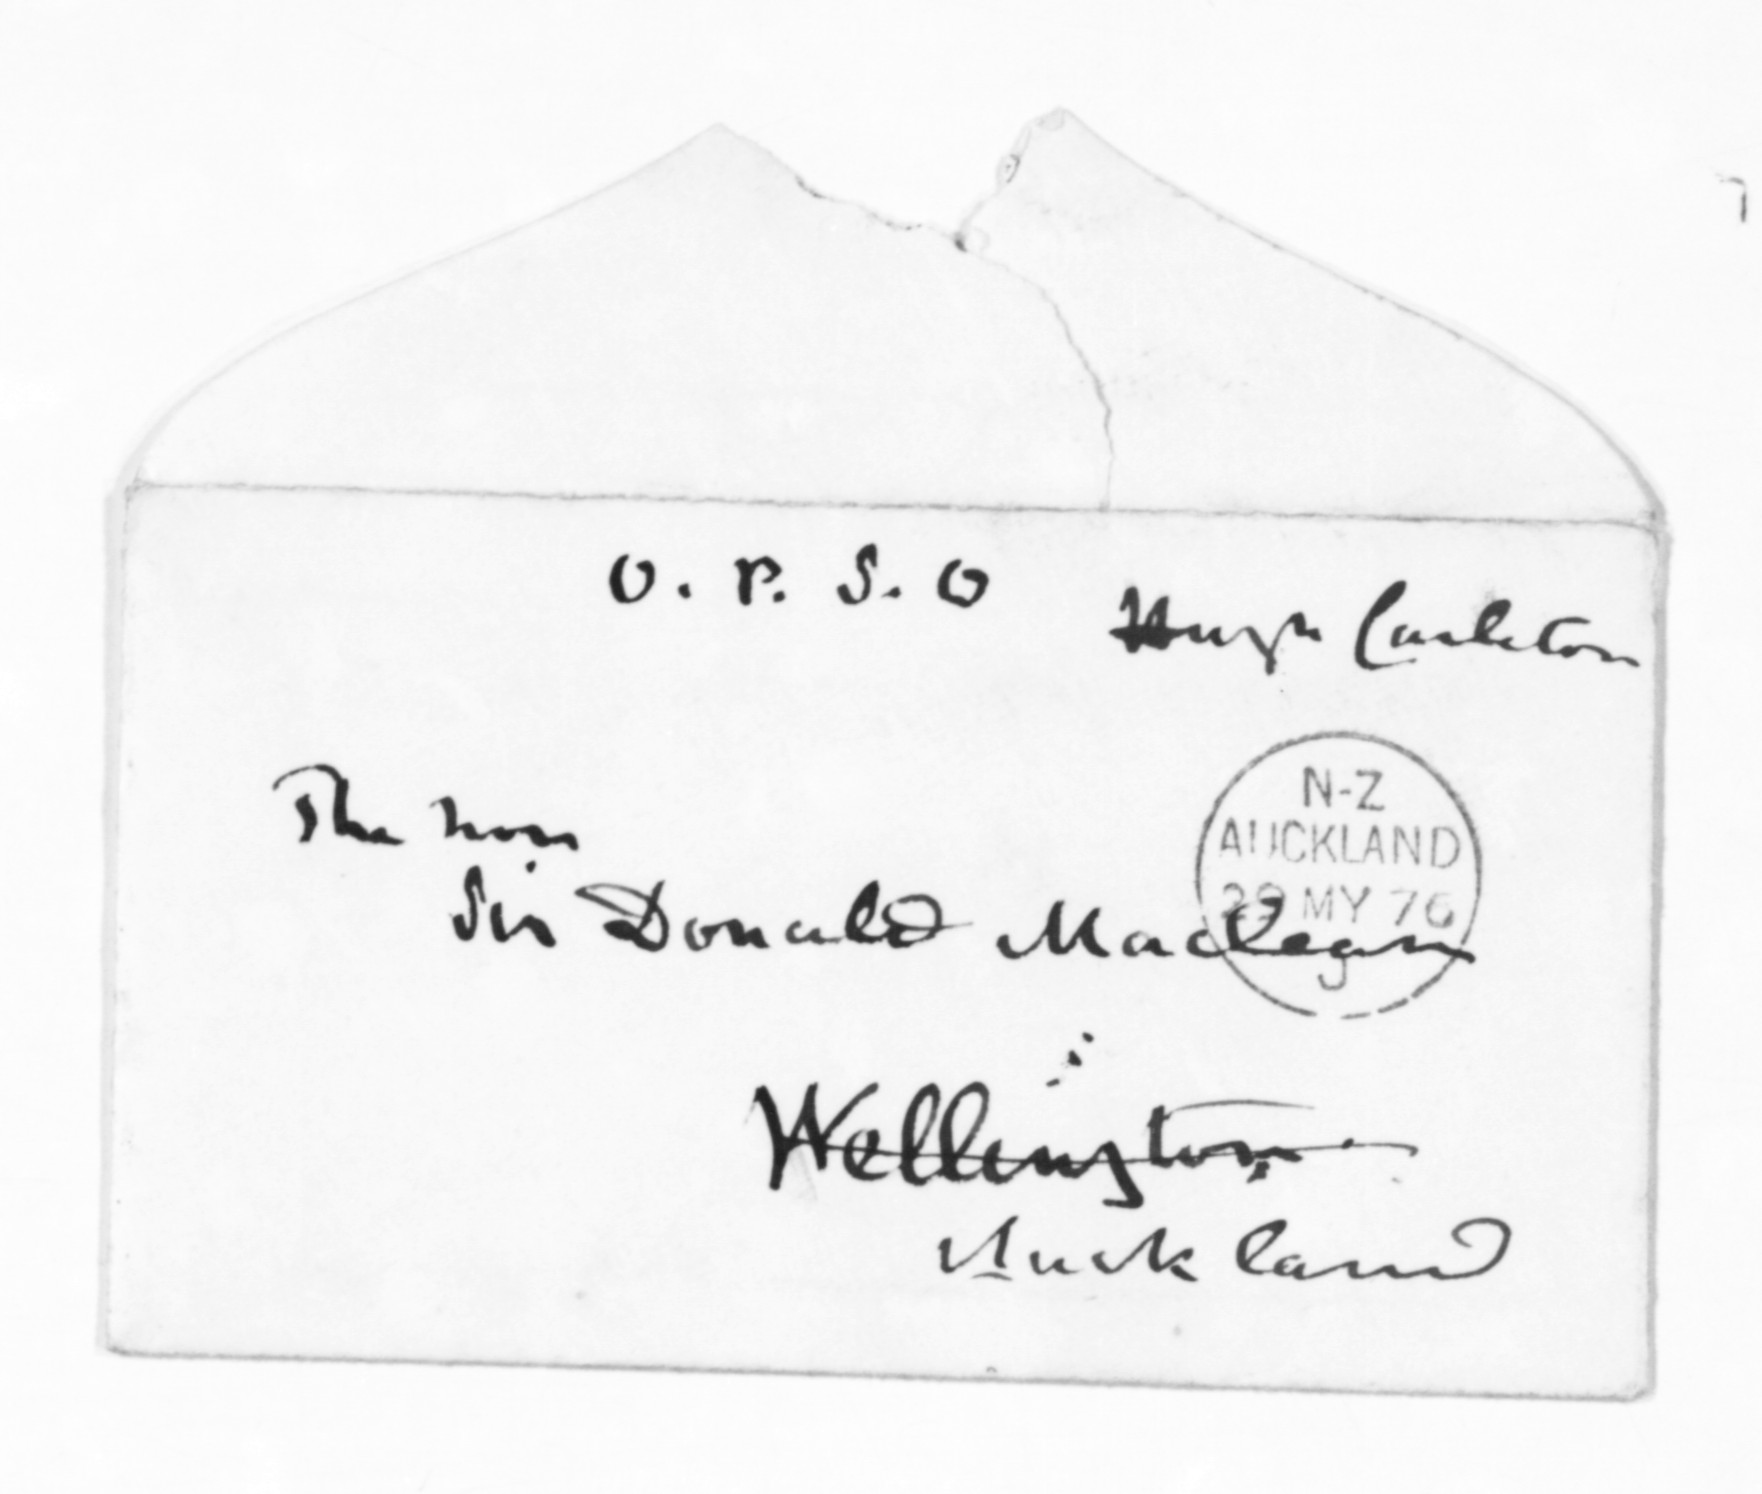 O. P. S. O
Hugh Carleton
N-Z
AUCKLAND
29 MY 76
The Hon
Sir Donald Maclean
Wellington
Auckland